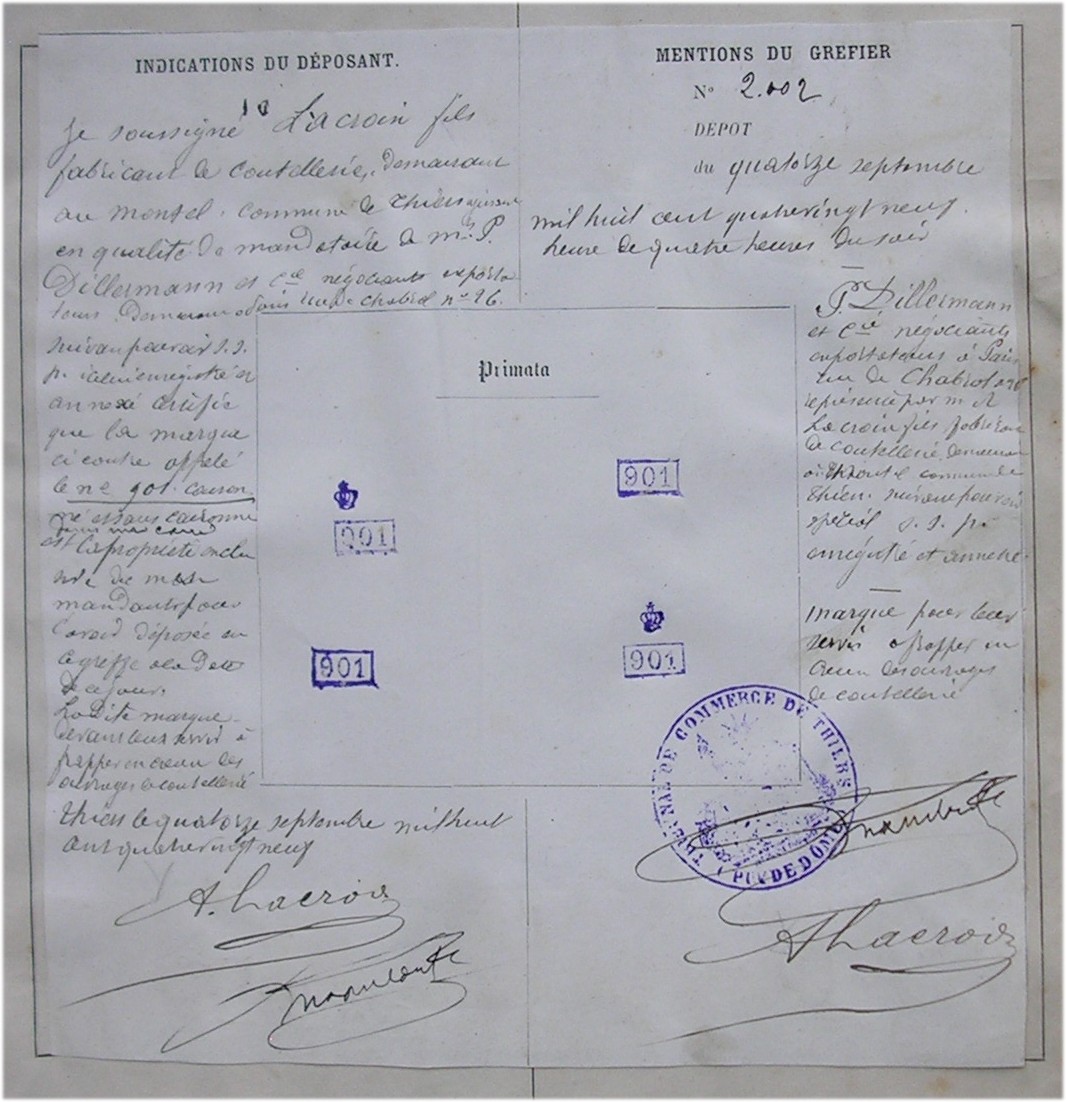 INDICATIONS DU DÉPOSANT.
Je soussigné Lacroix fils
fabricant de coutellerie, demeurant
au montel, commune de Thiers agissant
en qualité de mandataire de mrs P.
Dillermann et Cie négociants exporta
teurs. Demeurant Paris rue de chabrol no 26.
suivant pouvoir s.s.
p. enregistré et
annexé certifie
que la marque
ci contre appelé
le no 901. couron
né et sans couronne
est la propriété exclu
sive de mes
mandants pour
l'avoir déposée au
greffe a la date
de ce jour.
La dite marque
devant leur servir à
frapper en creux des
ouvrages de coutellerie
Thiers le quatorze septembre mil huit
cent quatrevingt neuf
A. Lacroix
MENTIONS DU GREFIER
No 2.002
DEPOT
du quatorze septembre
mil huit cent quatrevingt neuf.
heure de quatre heures du soir
P. Dillermann
et Cie négociants
exportateurs à Paris
rue de Chabrol no 26
représenté par m A
Lacroix fils fabricant
de coutellerie demeurant
commune de
Thiers. suivant pouvoir
spécial s.s.p.
enregistré et annexé
marque pour leur
servir a frapper en
creux des ouvrages
de coutellerie
Primata
901
901
901
901
TRIBUNAL DE COMMERCE DE THIERS
PUY DE DÔME
A Lacroix